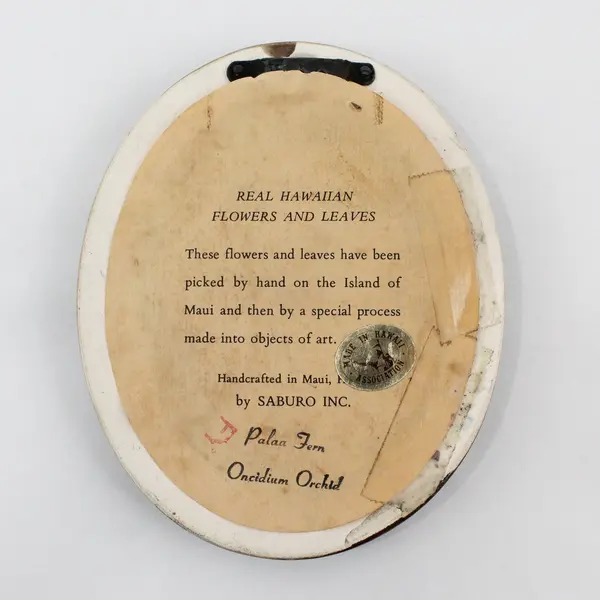 REAL HAWAIIAN
FLOWERS AND LEAVES
These flowers and leaves have been
picked by hand on the Island of
Maui and then by a special process
made into objects of art.
MADE IN HAWAII
ASSOCIATION
Handcrafted in Maui, H
by SABURO INC.
Palaa Fern
Oncidium Orchid